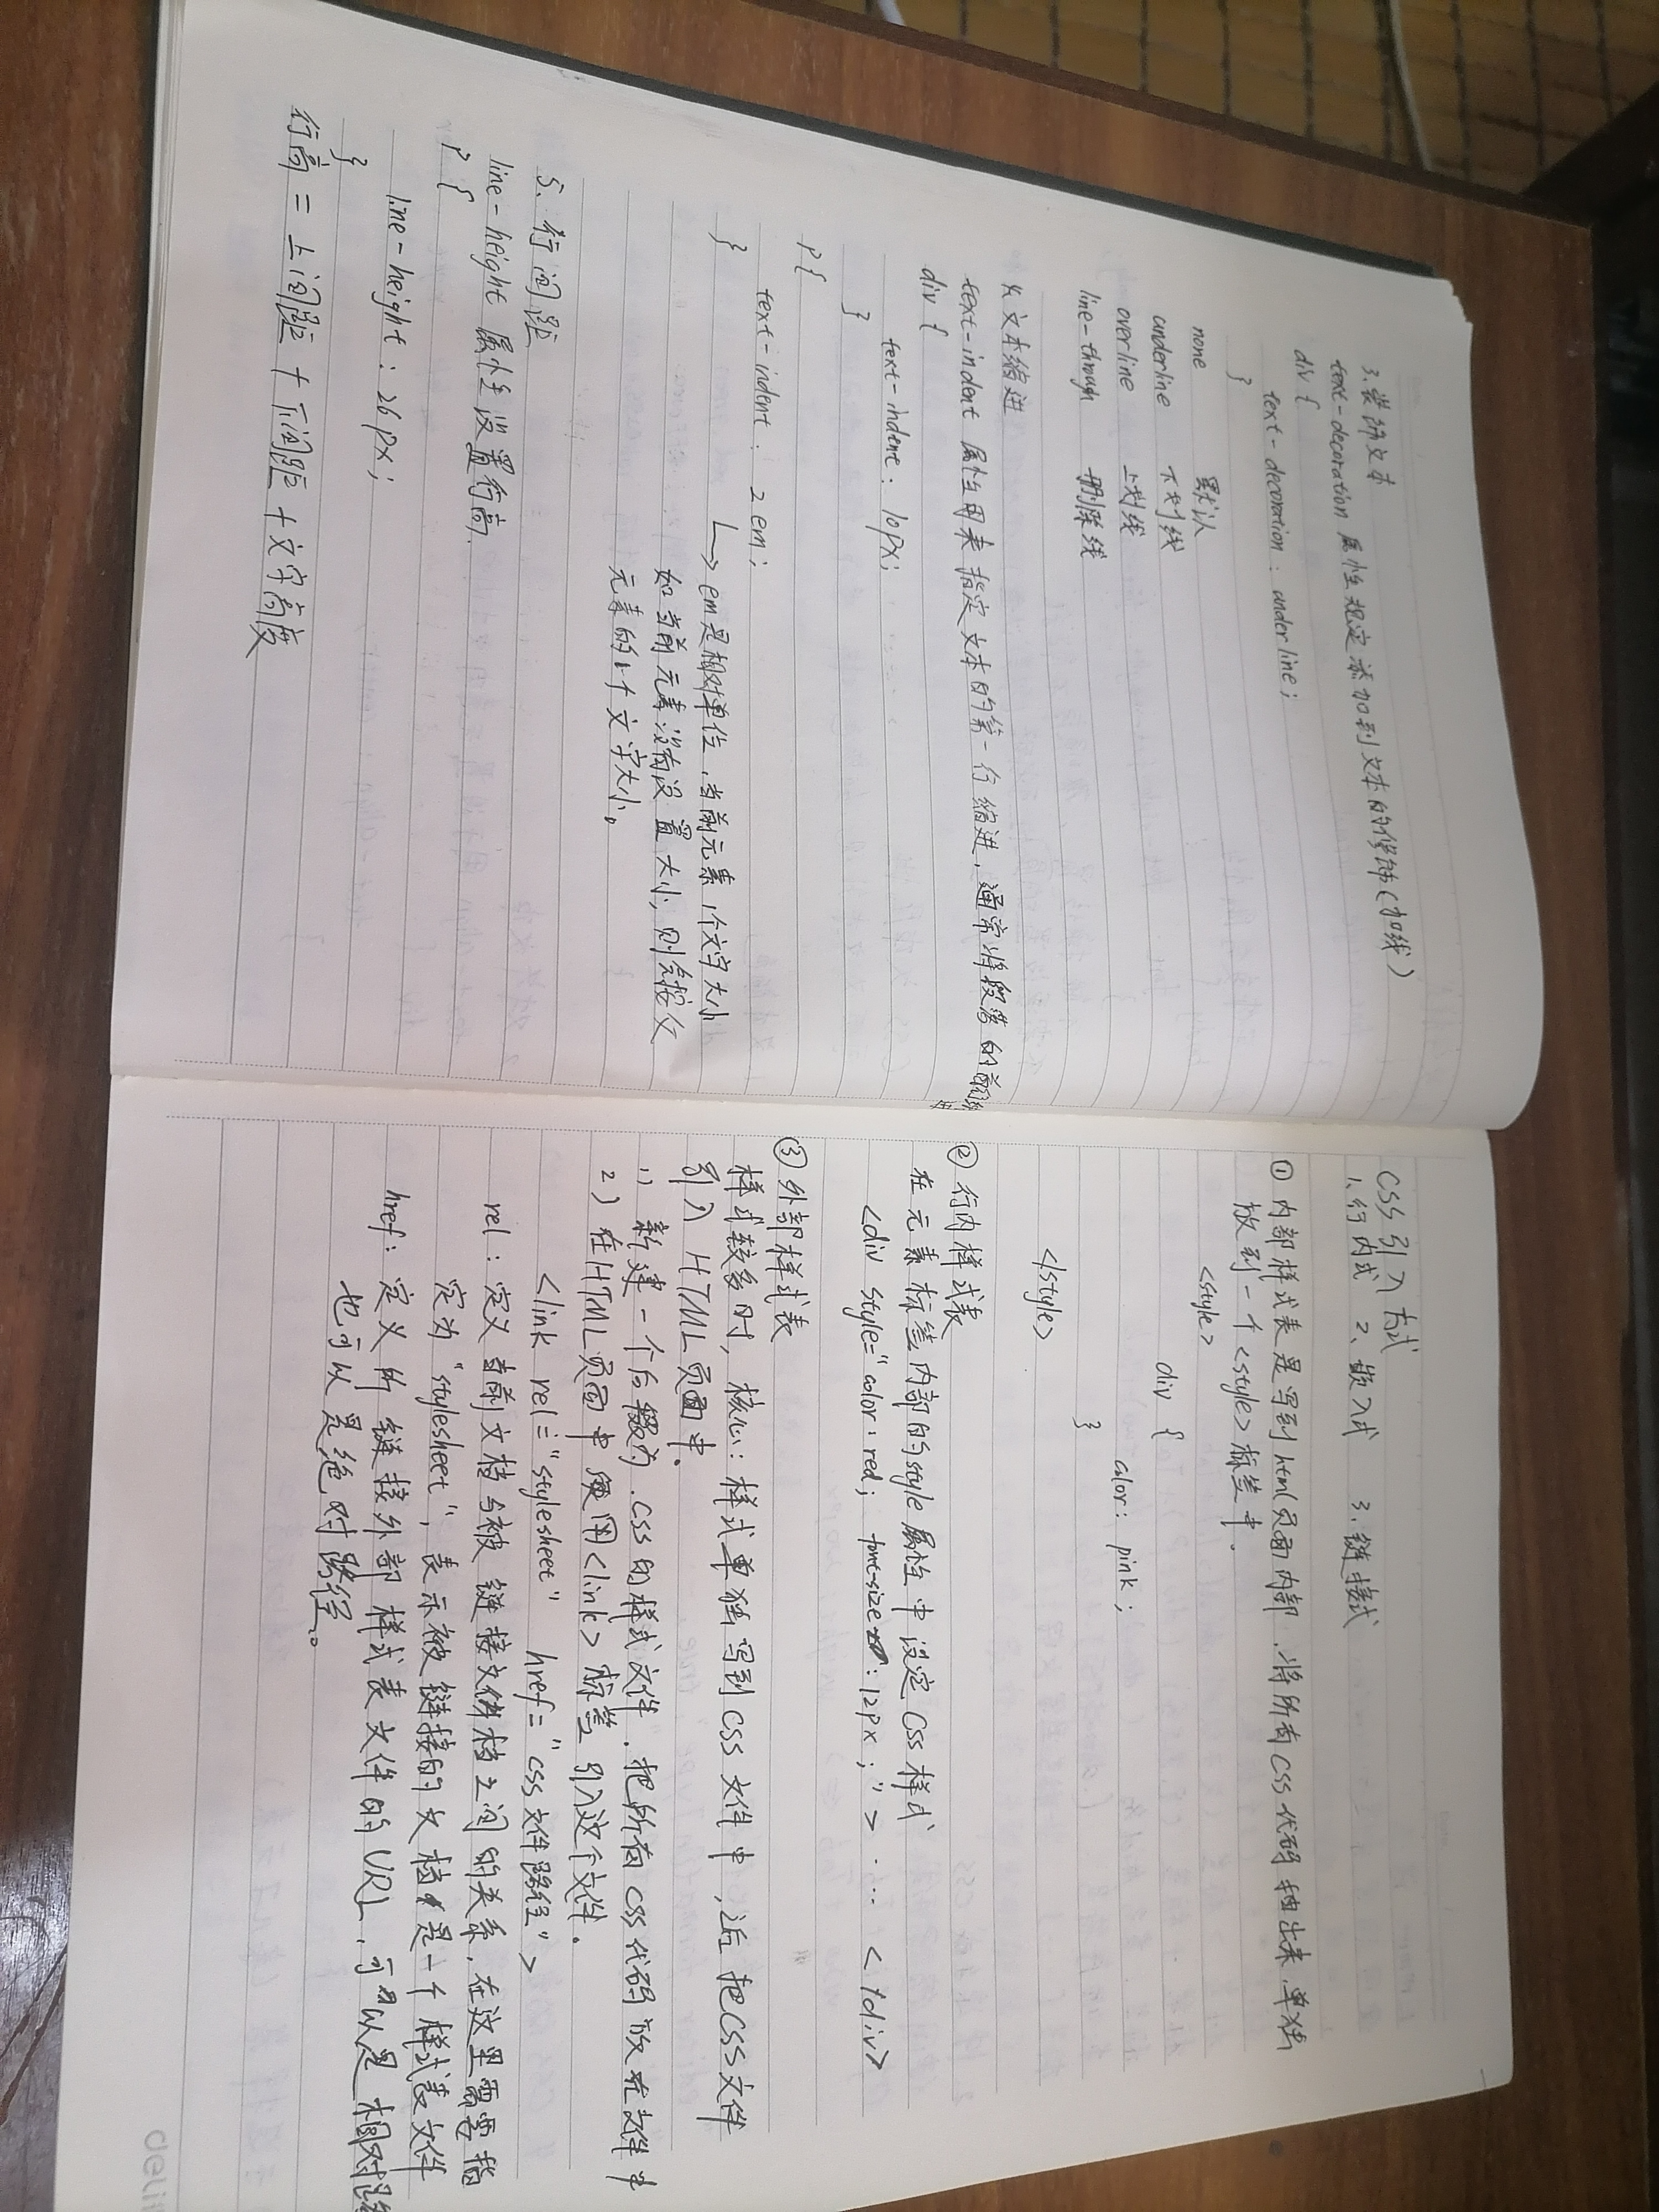 3、装饰文本
text-decoration 属性规定添加到文本的修饰(加线)
div {
text-decoration: underline;
}
none 默认
underline 下划线
overline 上划线
line-through 删除线
文本缩进
text-indent 属性用来指定文本的第一行缩进,通常将段落的首行
div {
text-indent: 10px;
}
p {
text-indent: 2em;
}
em是相对单位,当前元素1个文字大小
如当前元素没有设置大小,则会按父
元素的1个文字大小。
5、行间距
line-height 属性设置行高.
p {
line-height: 26px;
}
行高 = 上间距 + 下间距 + 文字高度
CSS引入方式
1、行内式 2、嵌入式 3、链接式
① 内部样式表是写到html页面内部.将所有CSS代码抽出来,单独
放到一个<style>标签中.
<style>
div {
color: pink;
}
</style>
② 行内样式表
在元素标签内部的style属性中设定CSS样式
<div style="color: red; font-size: 12px;"> ... </div>
③ 外部样式表
样式较多时,核心:样式单独写到CSS文件中,近把CSS文件
引入HTML页面中.
1) 新建一个后缀为.css的样式文件.把所有CSS代码放在文件中
2) 在HTML页面中使用<link>标签引入这个文件.
<link rel="stylesheet" href="css文件路径">
rel:定义当前文档与被链接文档之间的关系,在这里需要指
定为"stylesheet",表示被链接的文档是一个样式表文件
href:定义所链接外部样式表文件的URL,可以是相对路
也可以是绝对路径。
deli